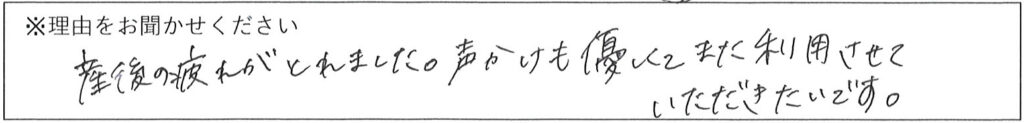 ※理由をお聞かせください
産後の疲れがとれました。声かけも優しくてまた利用させて
いただきたいです。